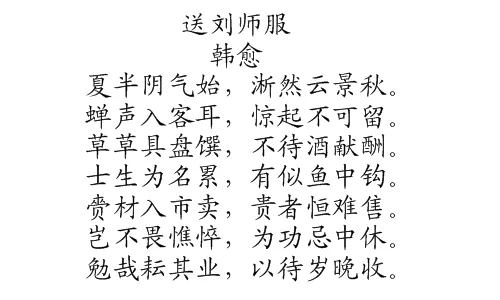 送刘师服
韩愈
夏半阴气始，淅然云景秋。
蝉声入客耳，惊起不可留。
草草具盘馔，不待酒献酬。
士生为名累，有似鱼中钩。
赍材入市卖，贵者恒难售。
岂不畏憔悴，为功忌中休。
勉哉耘其业，以待岁晚收。